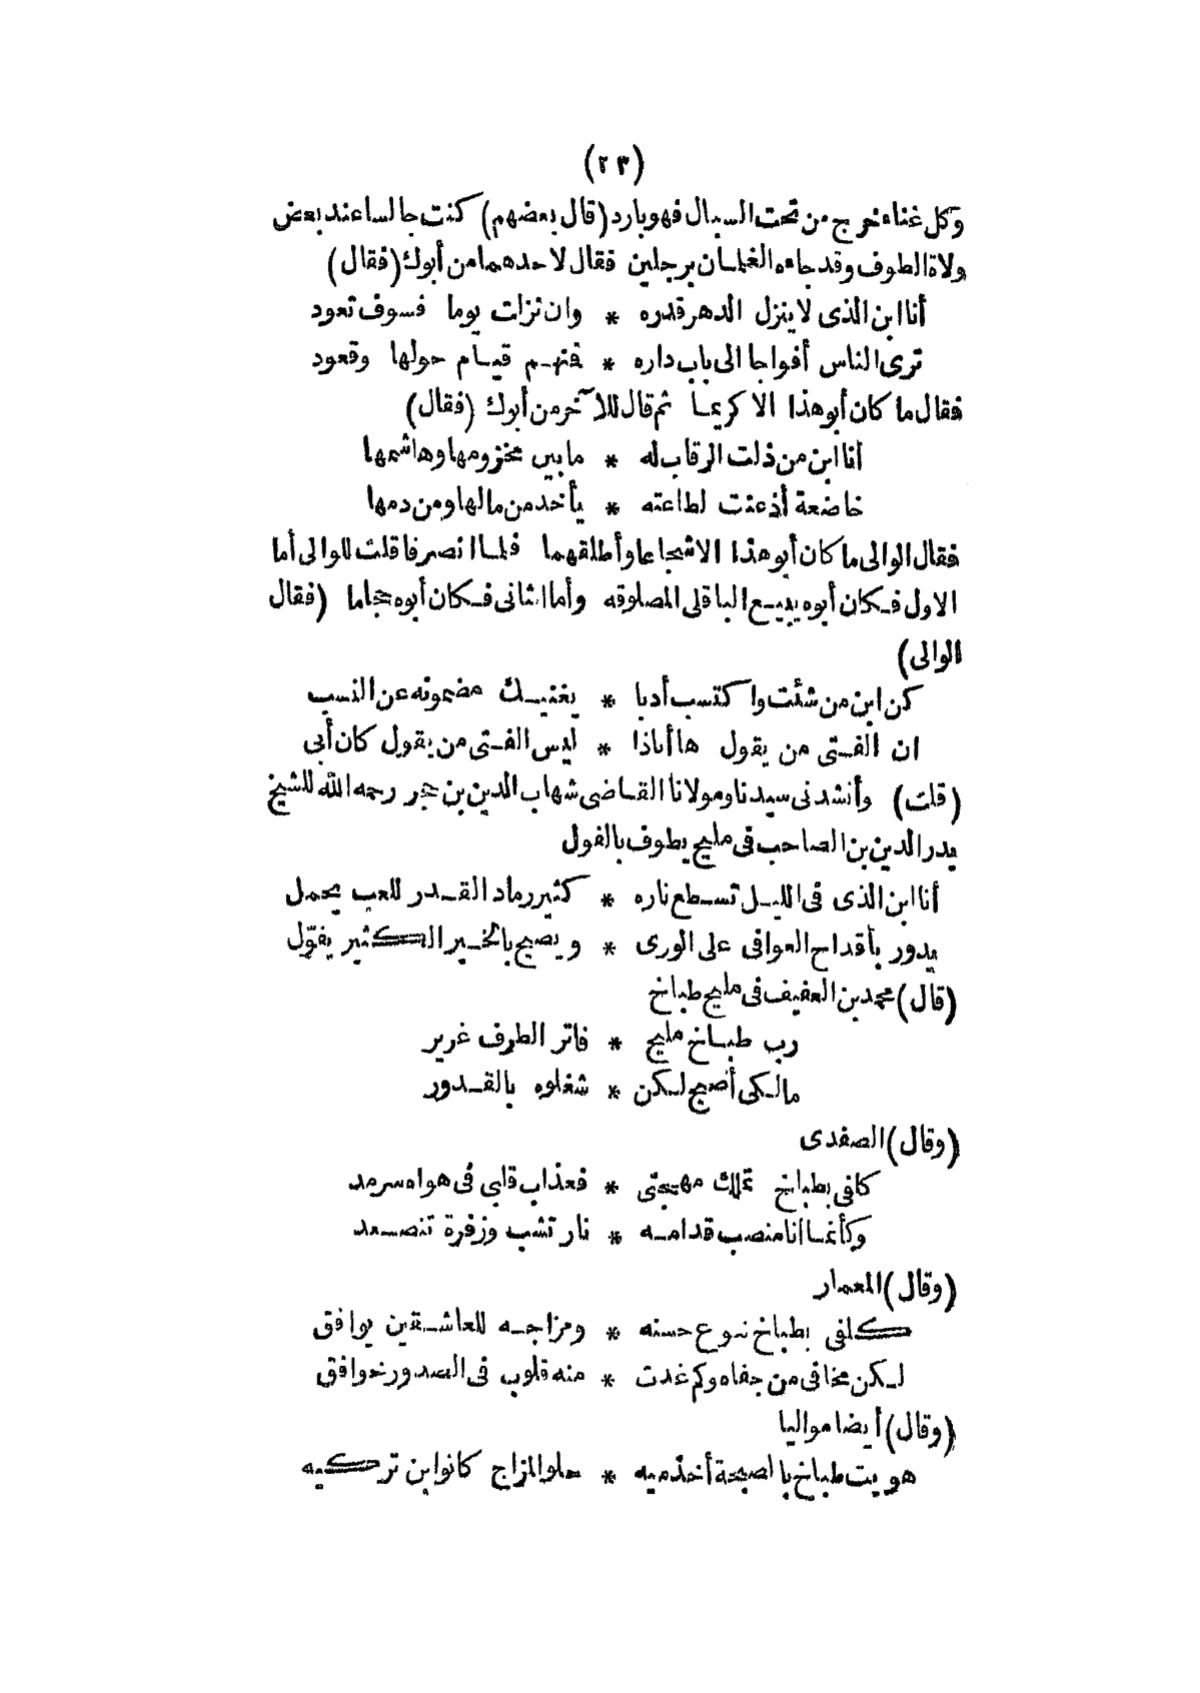 (٢٣)
وكل غناء خرج من تحت السبال فهو بارد (قال بعضهم) كنت جالسا عند بعض
ولاة الطوف وقد جاءه الغلمان برجلين فقال لاحدهما من أبوك (فقال)
أنا ابن الذى لا ينزل الدهر قدره * وان نزلت يوما فسوف تعود
ترى الناس أفواجا الى باب داره * فمنهم قيام حولها وقعود
فقال ما كان أبو هذا الا كريما ثم قال للآخر من أبوك (فقال)
أنا ابن من ذلت الرقاب له * ما بين مخزومها وهاشمها
خاضعة أذعنت لطاعته * يأخذ من مالها ومن دمها
فقال الوالى ما كان أبو هذا الا شجاعا وأطلقهما فلما انصرفا قلت للوالى أما
الاول فكان أبوه يبيع الباقلى المصلوقه وأما الثانى فكان أبوه حجاما (فقال
الوالى)
كن ابن من شئت واكتسب أدبا * يغنيك مضمونه عن النسب
ان الفتى من يقول ها أناذا * ليس الفتى من يقول كان أبى
(قلت) وأنشدنى سيدنا ومولانا القاضى شهاب الدين بن حجر رحمه الله للشيخ
بدر الدين بن الصاحب فى مليح يطوف بالفول
أنا ابن الذى فى الليل تسطع ناره * كثير رماد القدر للعب يحمل
يدور بأقداح العوافى على الورى * ويصبح بالخير الكثير يفوّل
(قال) محمد بن العفيف فى مليح طباخ
رب طباخ مليح * فاتر الطرف غرير
مالكى أصبح لكن * شغلوه بالقدور
(وقال) الصفدى
كلفى بطباخ تملك مهجتى * فعذاب قلبى فى هواه سرمد
وكأنما انا منصب قدامه * نار تشب وزفرة تتصعد
(وقال) المعمار
كلفى بطباخ تنوع حسنه * ومزاجه للعاشقين يوافق
لكن مخافى من جفاه وكم غدت * منه قلوب فى الصدور خوافق
(وقال) أيضا مواليا
هويت طباخ يا اصبحة أخذميه * حلو المزاج كانوا بن تركيه